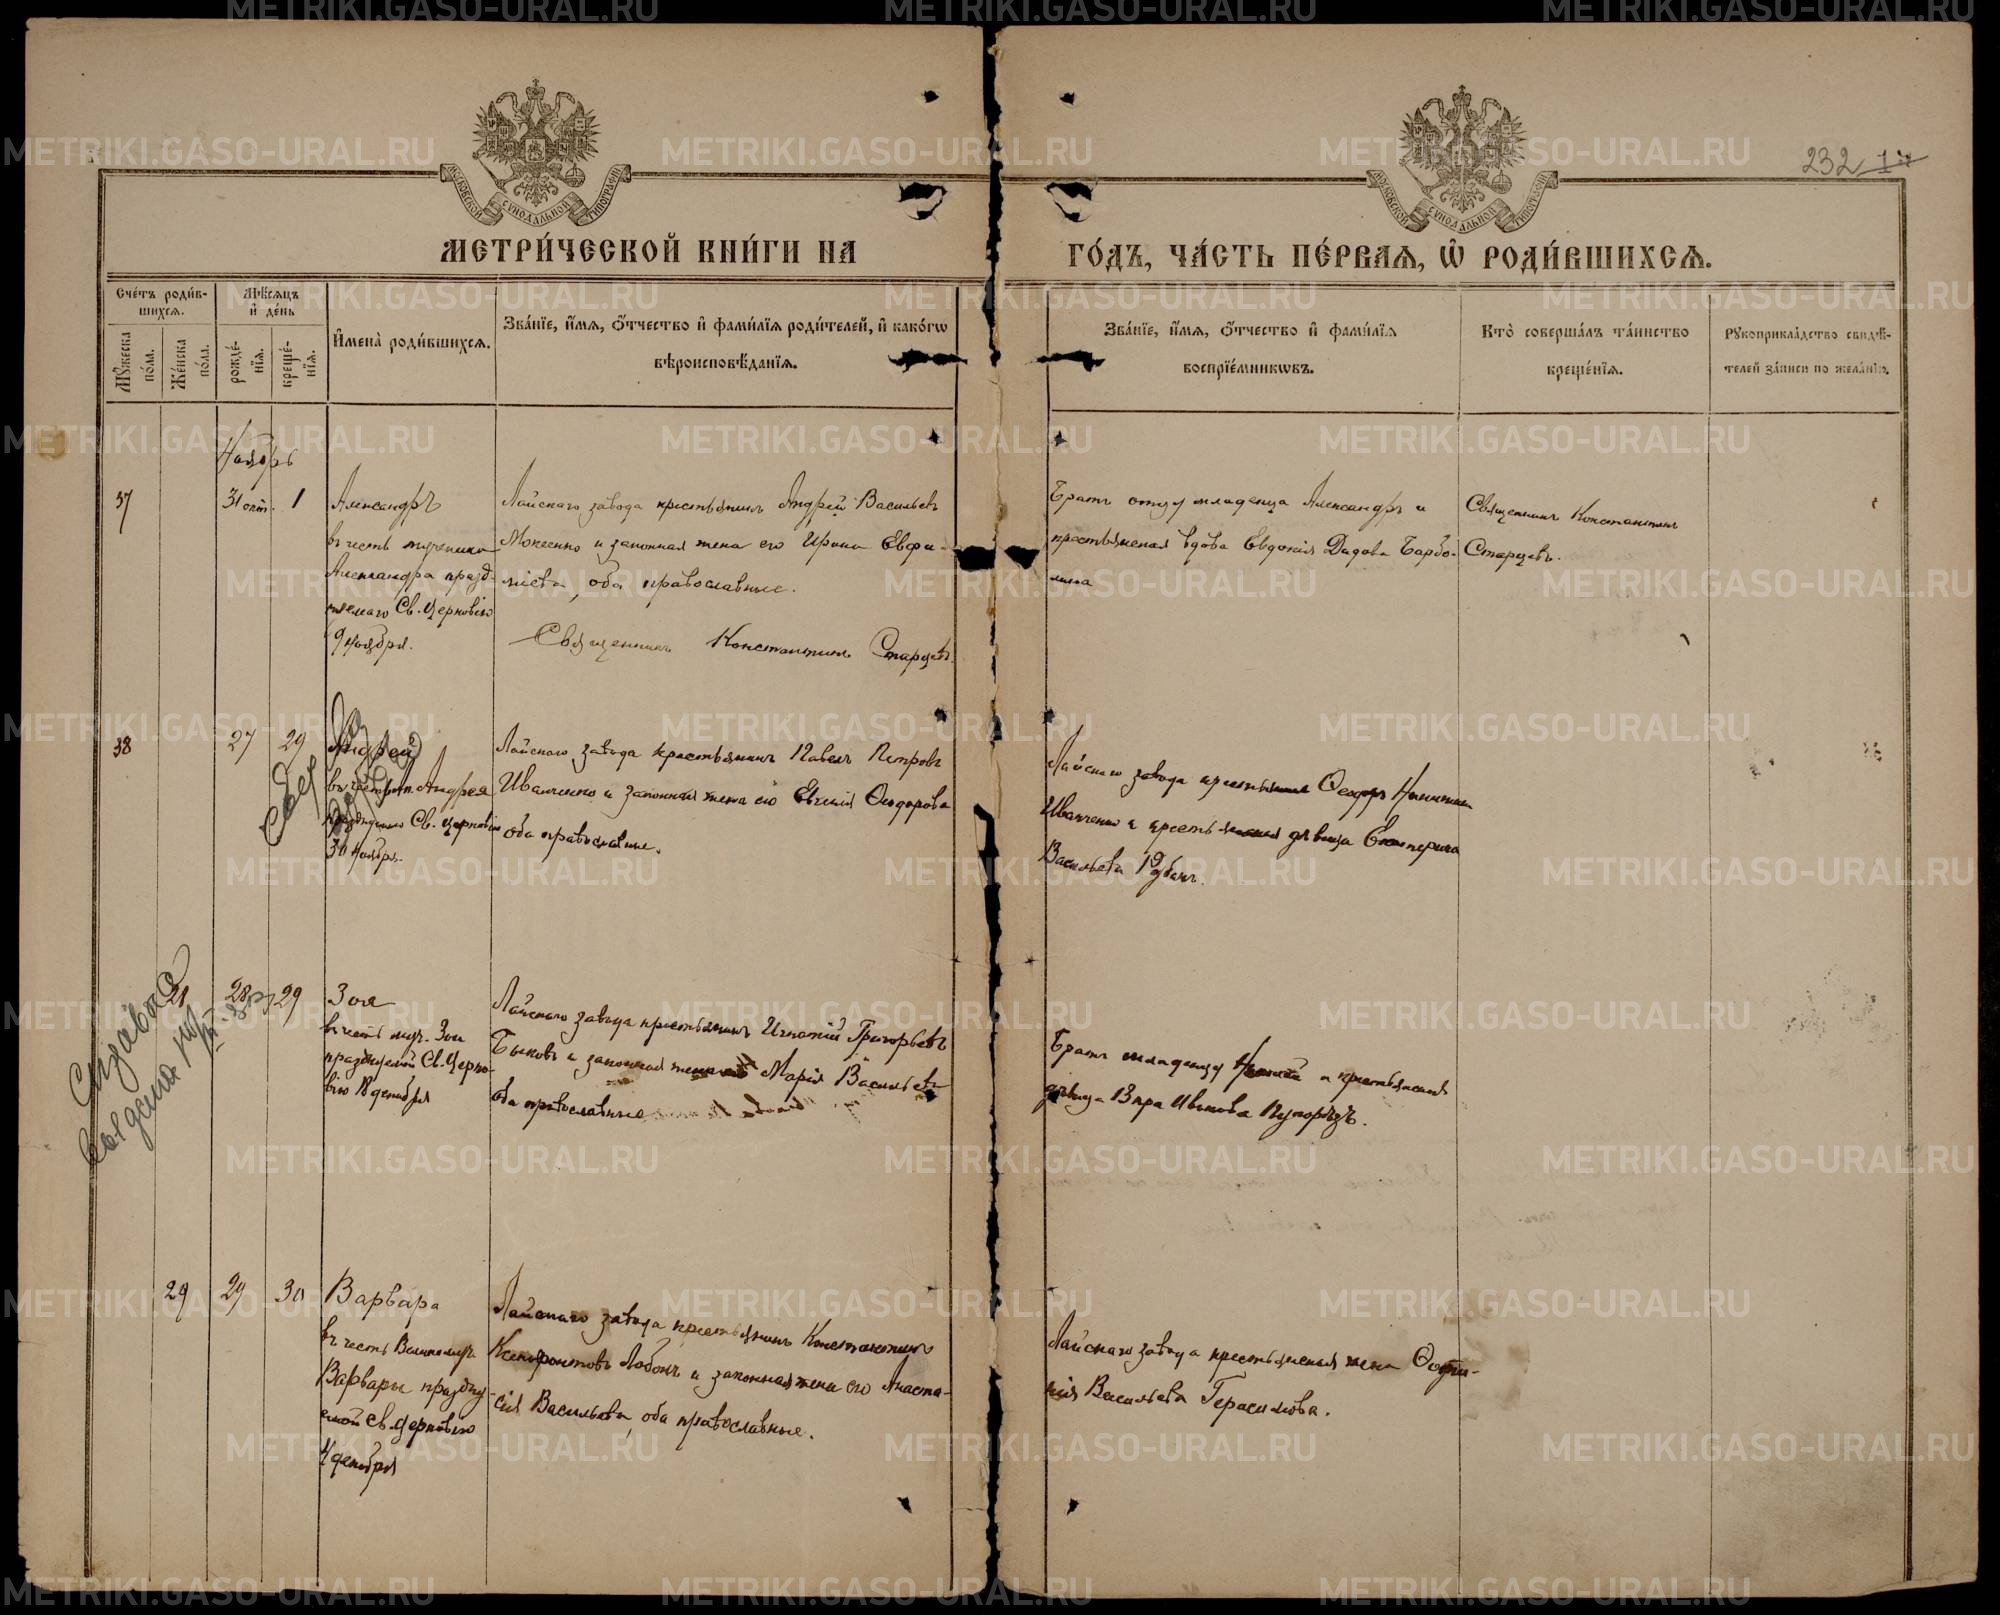 232
МОСКОВСКОЙ СѴНОДАЛЬНОЙ ТИПОГРАФІИ
МОСКОВСКОЙ СѴНОДАЛЬНОЙ ТИПОГРАФІИ
МЕТРИ́ЧЕСКОЙ КНИ́ГИ НА
ГО́ДЪ, ЧА́СТЬ ПЕ́РВАѦ, Ѡ҆ РОДИ́ВШИХСѦ.
Сче́тъ роди́в-
шихсѧ.
Мꙋ́жеска по́ла.
Же́нска по́ла.
Мѣ́сѧцъ
и҆ де́нь
рожде́-
нїѧ.
креще́-
нїѧ.
И҆мена̀ роди́вшихсѧ.
Зва́нїе, и҆́мѧ, ѻ҆́тчество и҆ фами́лїѧ роди́телей, и҆ како́гѡ
вѣроисповѣ́данїѧ.
Зва́нїе, и҆́мѧ, ѻ҆́тчество и҆ фами́лїѧ
воспрїе́мникѡвъ.
Кто̀ соверша́лъ та́инство
креще́нїѧ.
Рꙋкоприкла́дство свидѣ́-
телей за́писи по жела́нїю.
Ноябрь
37
31 окт.
1
Александръ
въ честь мученика
Александра празд-
нуемаго Св. Церковію
9 ноября.
Лайскаго завода крестьянинъ Андрей Васильевъ
и законная жена его Ирина Евфи-
міева, оба православные.
Священникъ Константинъ Старцевъ
Братъ отцу младенца Александръ и
крестьянская вдова Евдокія
Священникъ Константинъ
Старцевъ.
38
27
29
Андрей
въ честь ап. Андрея
празднуемаго Св. Церковію
30 ноября.
Лайскаго завода крестьянинъ Павелъ Петровъ
Иванченко и законная жена его Евгенія Ѳеодорова
оба православные.
Лайскаго завода крестьянинъ Ѳеодоръ
Иванченко и крестьянская дѣвица Екатерина
Васильева
28
29
Зоя
въ честь муч. Зои
празднуемой Св. Церко-
вію 18 декабря
Лайскаго завода крестьянинъ Игнатій Григорьевъ
Быковъ и законная жена его Марія Васильева
оба православные
Братъ младенцу и крестьянская
дѣвица Вѣра Иванова
29
29
30
Варвара
въ честь Великомуч.
Варвары празднуе-
мой Св. Церковію
4 декабря
Лайскаго завода крестьянинъ Константинъ
Ксенофонтовъ и законная жена его Анаста-
сія Васильева, оба православные.
Лайскаго завода крестьянская жена
Васильева Герасимова.
METRIKI.GASO-URAL.RU